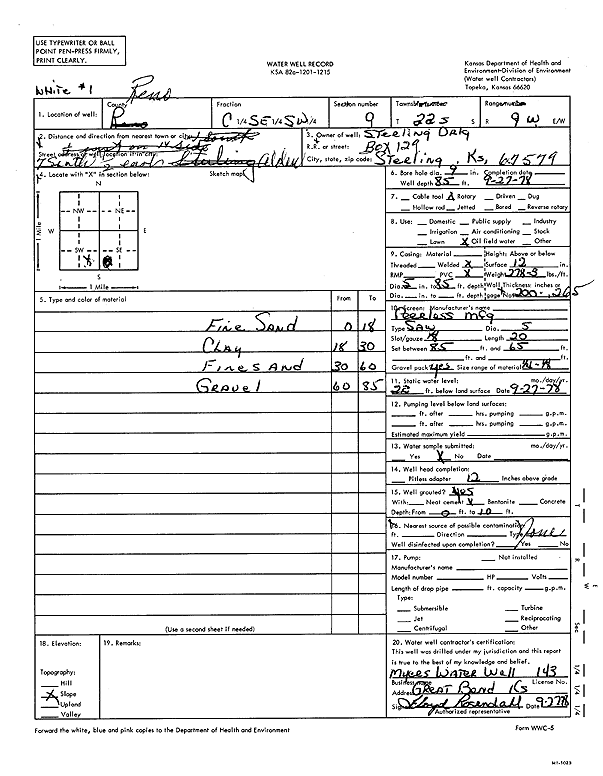 USE TYPEWRITER OR BALL
POINT PEN-PRESS FIRMLY,
PRINT CLEARLY.
WATER WELL RECORD
KSA 82a-1201-1215
Kansas Department of Health and
Environment-Division of Environment
(Water well Contractors)
Topeka, Kansas 66620
WHITE #1
Reno
1. Location of well: County Fraction C 1/4 SE 1/4 SW 1/4 Section number 9 Town number T 22 S S Range number R 9 W E/W
2. Distance and direction from nearest town or city:
Street address of well location if in city:
3. Owner of well: Sterling Drlg
R.R. or street: Box 129
City, state, zip code: Sterling, Ks, 67579
4. Locate with "X" in section below: Sketch map:
N
NW NE
W E
SW SE
X
S
1 Mile
1 Mile
6. Bore hole dia. 9 in. Completion date
Well depth 85 ft. 9-27-78
7. Cable tool X Rotary Driven Dug
Hollow rod Jetted Bored Reverse rotary
8. Use: Domestic Public supply Industry
Irrigation Air conditioning Stock
Lawn X Oil field water Other
9. Casing: Material Height: Above or below
Threaded Welded X Surface 12 in.
RMP PVC X Weight 278-3 lbs./ft.
Dia. 5 in. to 85 ft. depth Wall Thickness: inches or
Dia. in. to ft. depth gage No. 200-.265
5. Type and color of material From To
Fine Sand 0 18
Clay 18 30
Fine Sand 30 60
Gravel 60 85
(Use a second sheet if needed)
10. Screen: Manufacturer's name
Peerless Mfg
Type Saw Dia. 5
Slot/gauze 18 Length 20
Set between 85 ft. and 65 ft.
ft. and ft.
Gravel pack? yes Size range of material
11. Static water level: mo./day/yr.
ft. below land surface Date 9-27-78
12. Pumping level below land surfaces:
ft. after hrs. pumping g.p.m.
ft. after hrs. pumping g.p.m.
Estimated maximum yield g.p.m.
13. Water sample submitted: mo./day/yr.
Yes X No Date
14. Well head completion:
Pitless adapter 12 Inches above grade
15. Well grouted? yes
With: Neat cement X Bentonite Concrete
Depth: From 0 ft. to 10 ft.
16. Nearest source of possible contamination:
ft. Direction Type none
Well disinfected upon completion? Yes No
17. Pump: Not installed
Manufacturer's name
Model number HP Volts
Length of drop pipe ft. capacity g.p.m.
Type:
Submersible Turbine
Jet Reciprocating
Centrifugal Other
18. Elevation:
Topography:
Hill
X Slope
Upland
Valley
19. Remarks:
20. Water well contractor's certification:
This well was drilled under my jurisdiction and this report
is true to the best of my knowledge and belief.
Myers Water Well 143
Business name License No.
Address Great Bend Ks
Signed Floyd Rosendall Date 9-27-78
Authorized representative
T
R
E
W
Sec
1/4
1/4
1/4
Forward the white, blue and pink copies to the Department of Health and Environment
Form WWC-5